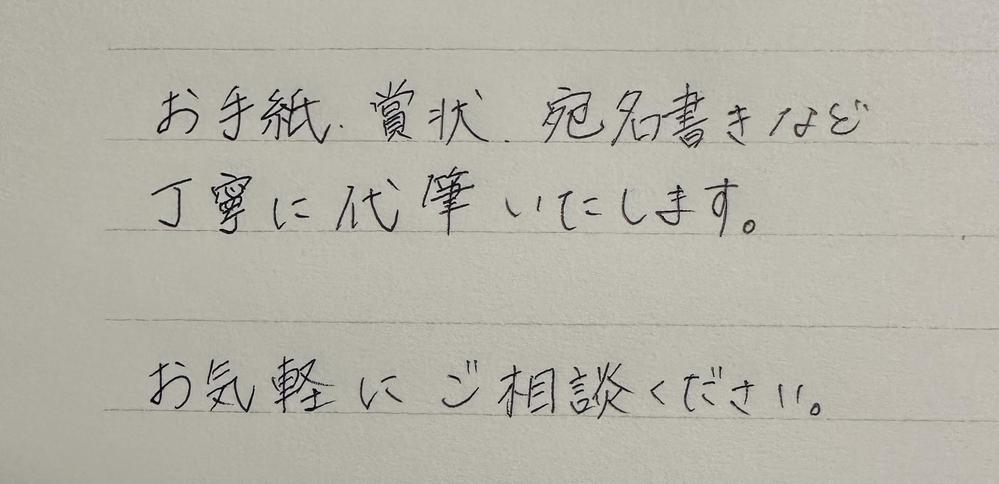 お手紙、賞状、宛名書きなど
丁寧に代筆いたします。
お気軽にご相談ください。